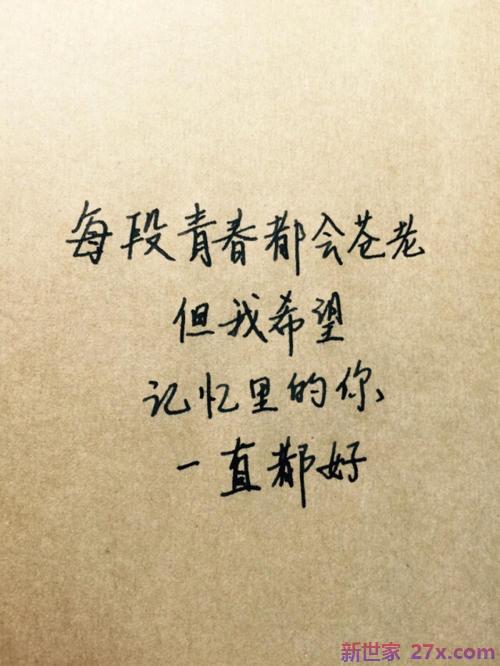 每段青春都会苍老
但我希望
记忆里的你
一直都好
新世家 27x.com